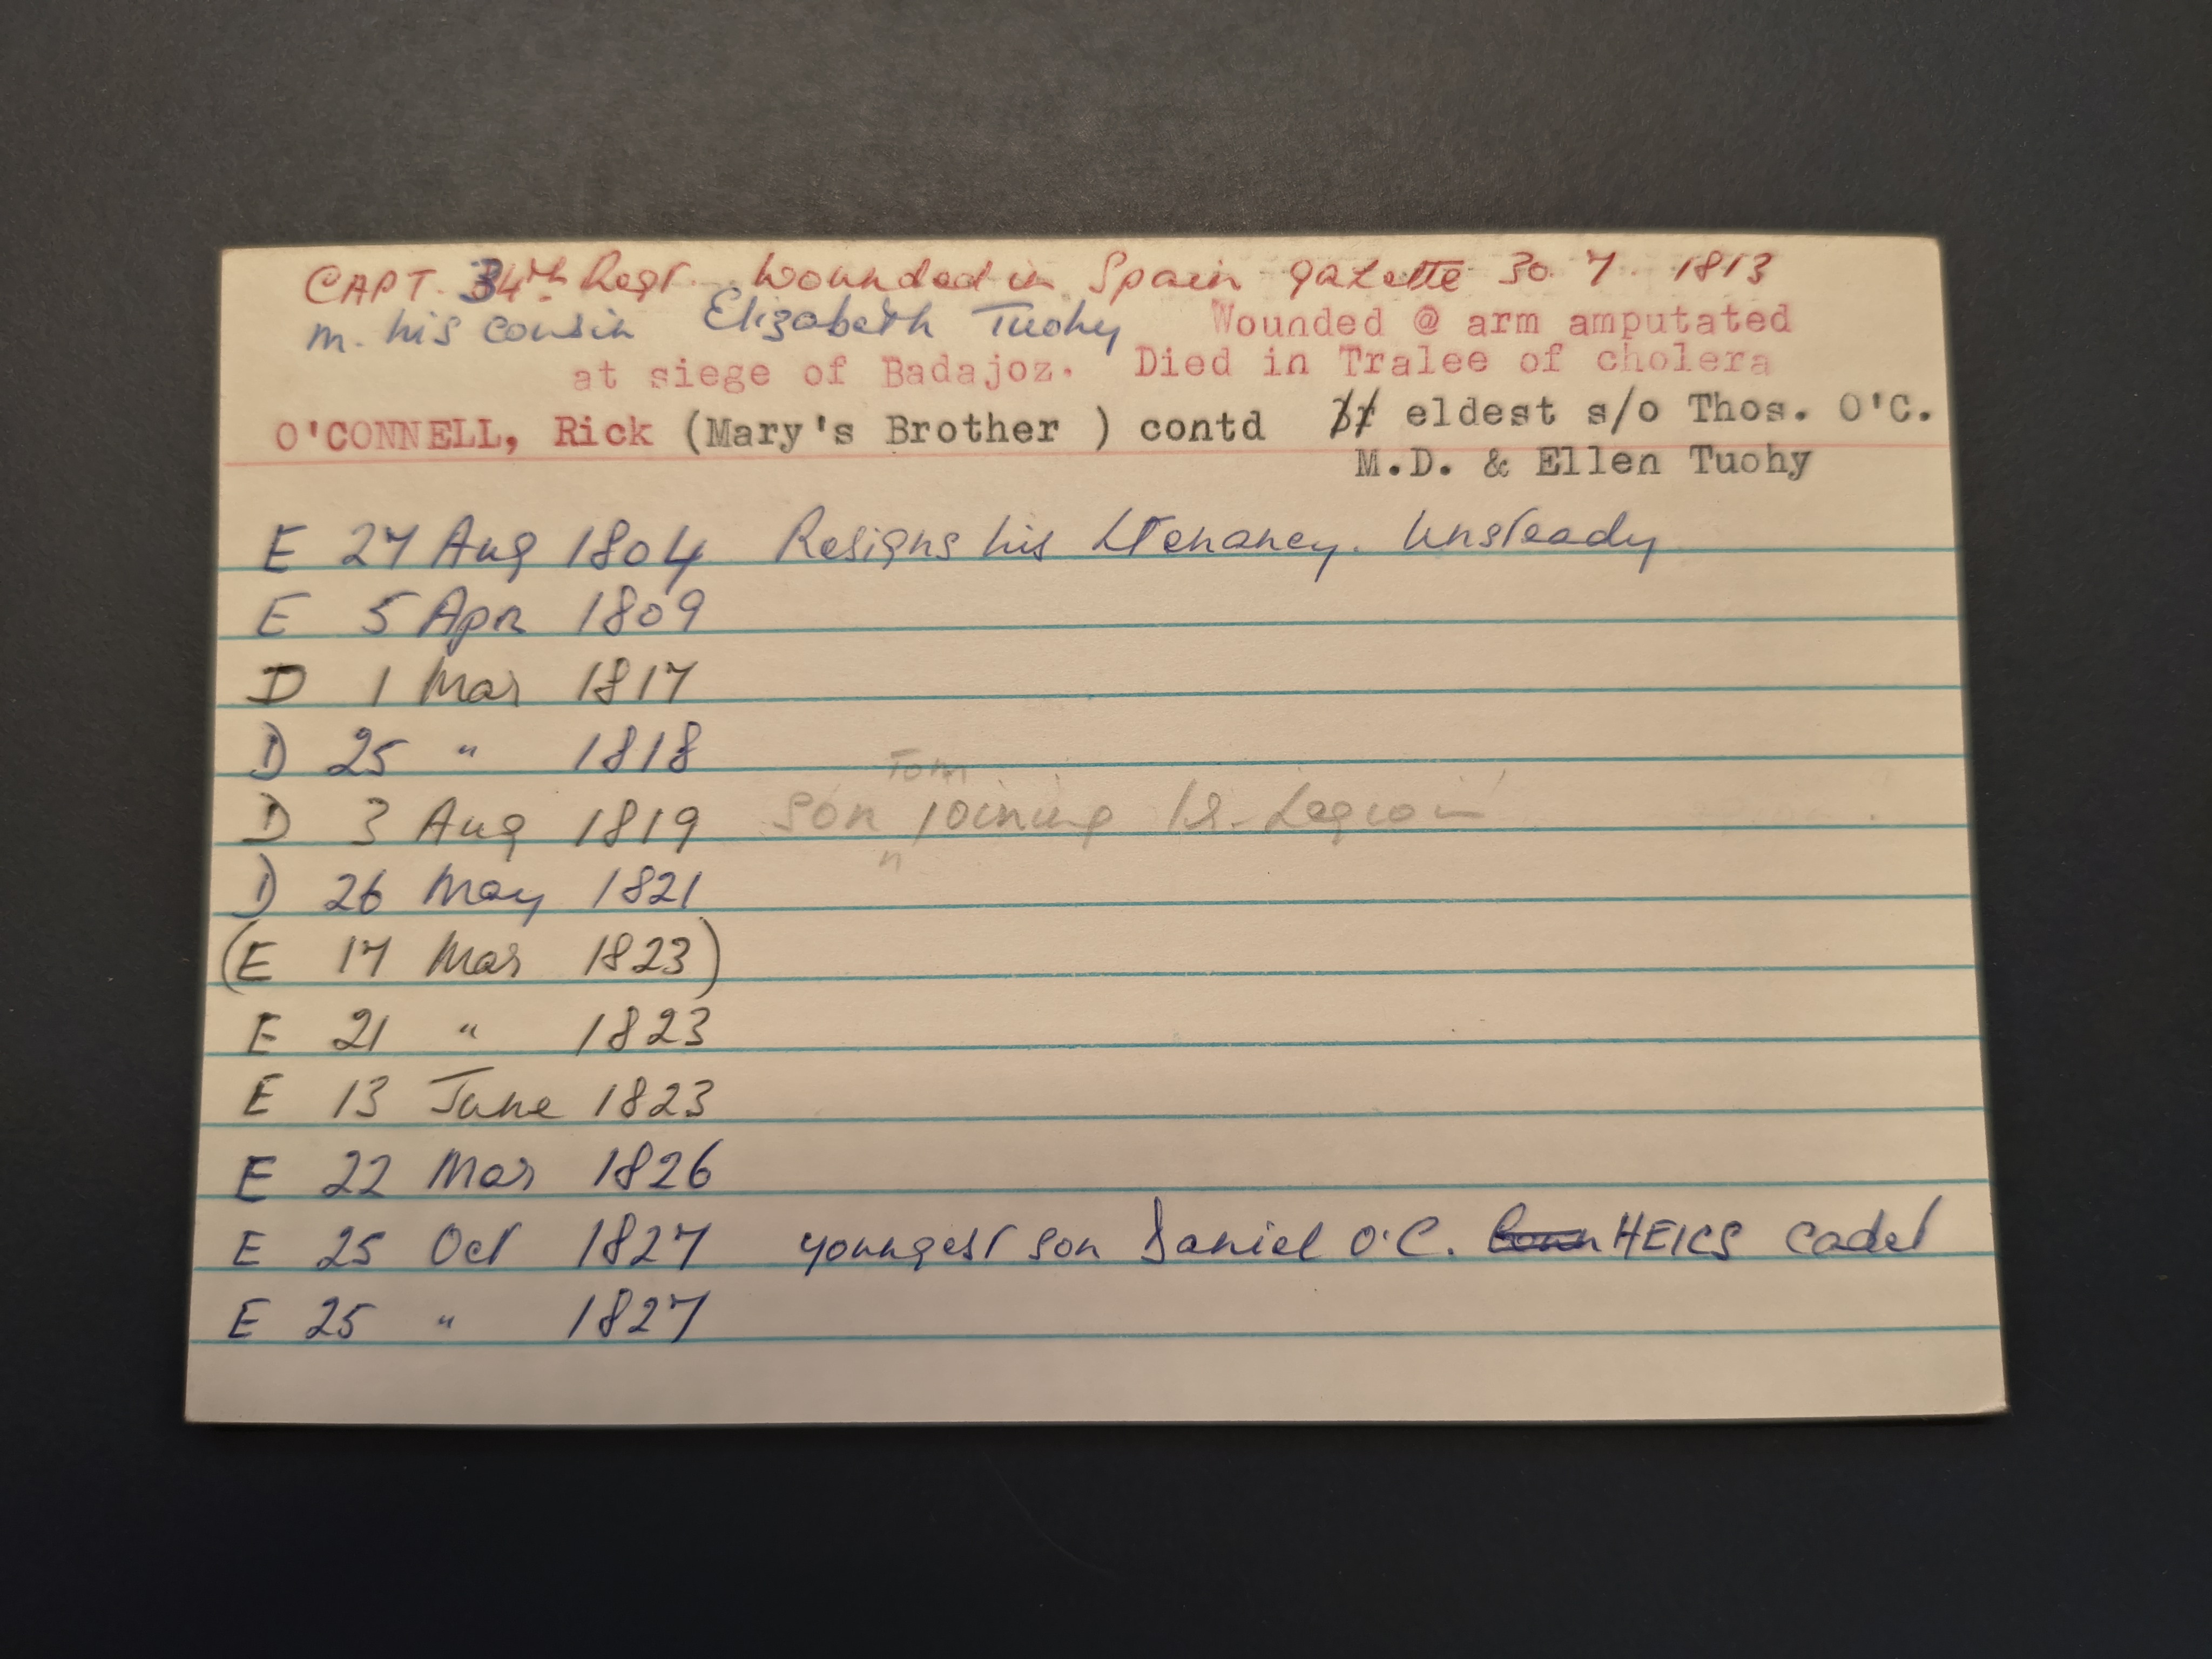 CAPT. 34th Regt. Wounded in Spain gazette 30. 7. 1813
m. his cousin Elizabeth Tuohy Wounded @ arm amputated
at siege of Badajoz. Died in Tralee of cholera
O'CONNELL, Rick (Mary's Brother ) contd eldest s/o Thos. O'C.
M.D. & Ellen Tuohy
E 27 Aug 1804 Resigns his Ltenancy. Unsteady
E 5 Apr 1809
D 1 Mar 1817
D 25 " 1818
Tom
D 3 Aug 1819 son joining Ir. Legion
"
D 26 May 1821
(E 17 Mar 1823)
E 21 " 1823
E 13 June 1823
E 22 Mar 1826
E 25 Oct 1827 youngest son Daniel O'C. HEICS Cadet
E 25 " 1827